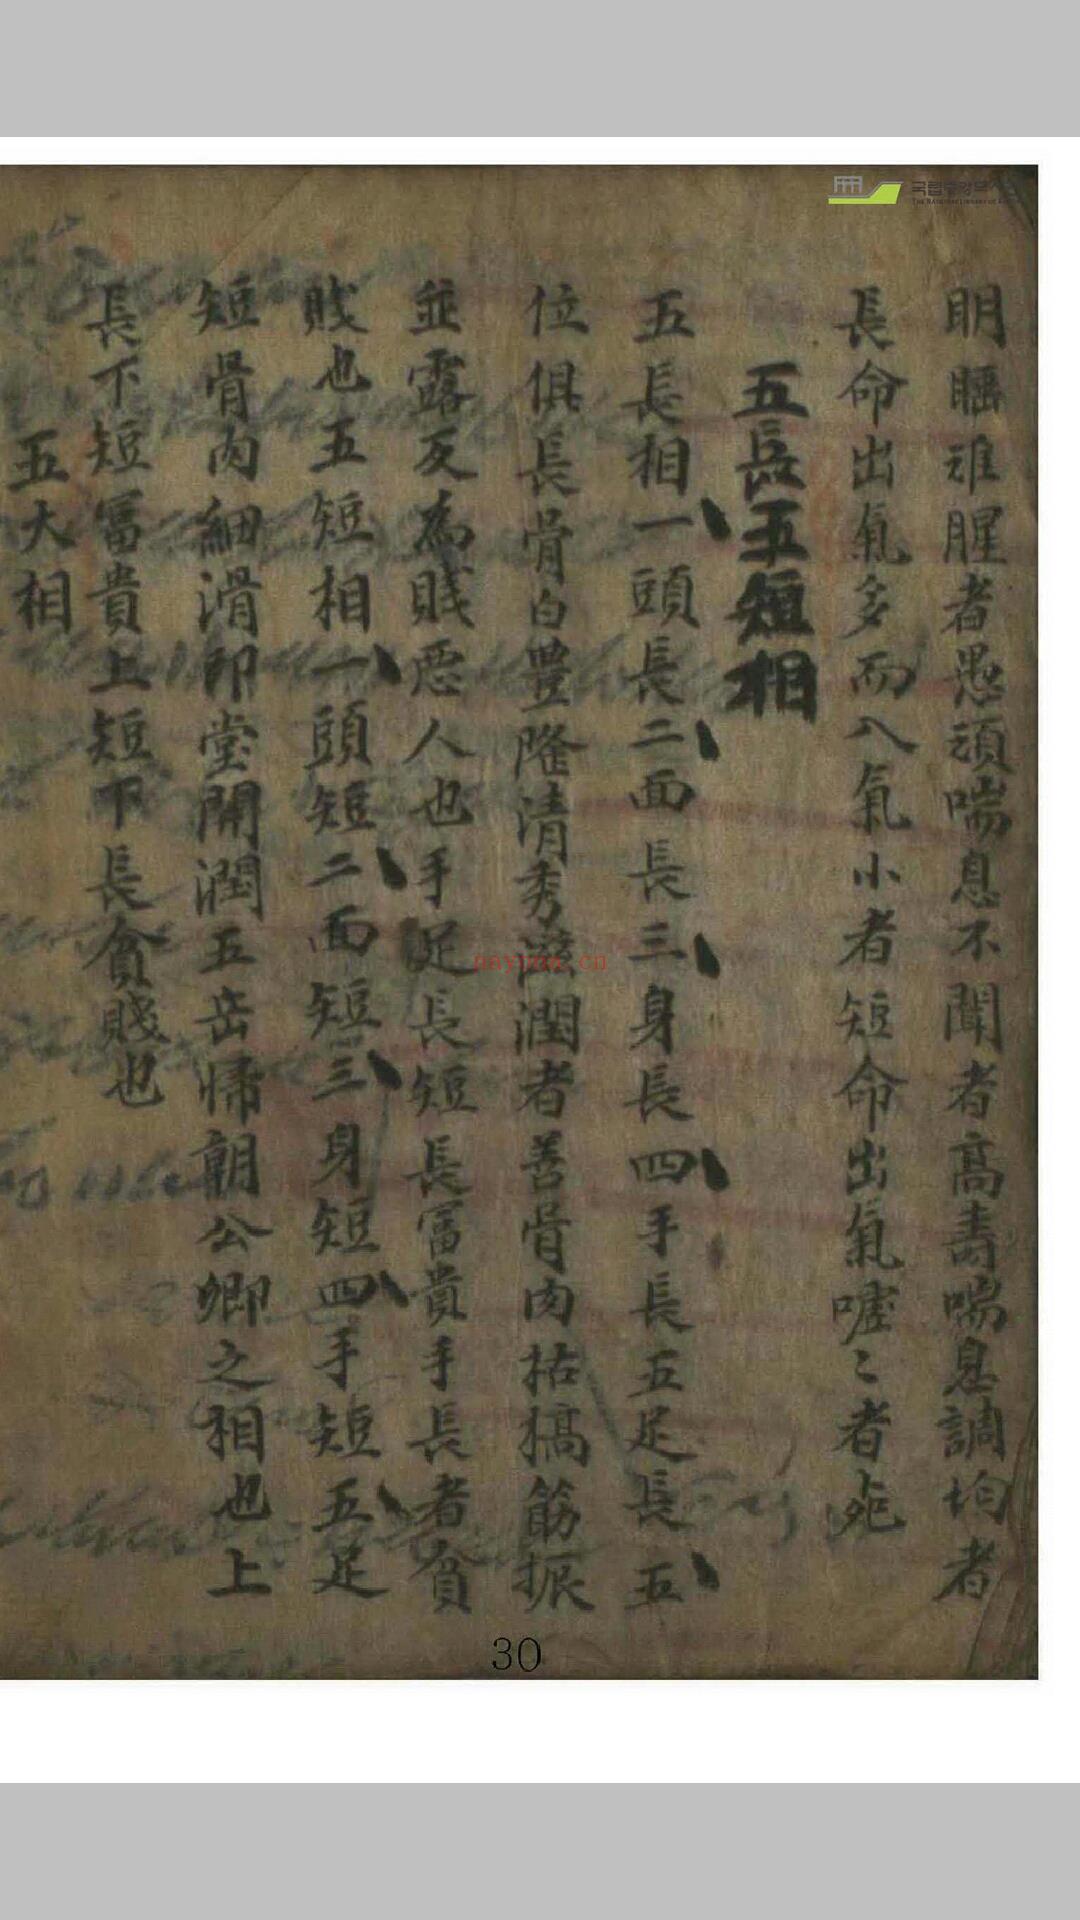 明睡难腥者愚頑喘息不聞者高壽喘息調均者
長命出氣多而入氣小者短命出氣嘘〻者死
五長五短相
五長相一頭長二面長三身長四手長五足長五
位俱長骨白豊隆清秀滋潤者善骨肉枯槁筋振
並露反為賎惡人也手足長短長冨貴手長者貧
賎也五短相一頭短二面短三身短四手短五足
短骨肉細滑印堂開潤五岳帰朝公卿之相也上
長下短冨貴上短下長貧賎也
五大相
30
국립중앙도서관
THE NATIONAL LIBRARY OF KOREA